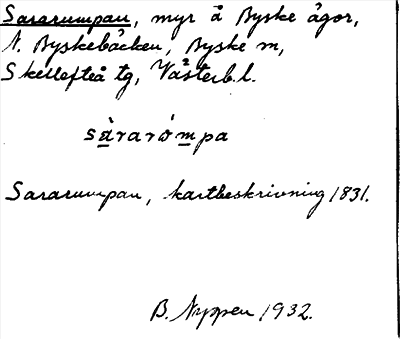 Sararumpan, myr å Byske ägor,
N. Byskebäcken, Byske sn,
Skellefteå tg, Västerb. l.
sàrarómpa
Sararumpan, kartbeskrivning 1831.
B. Nyppen 1932.